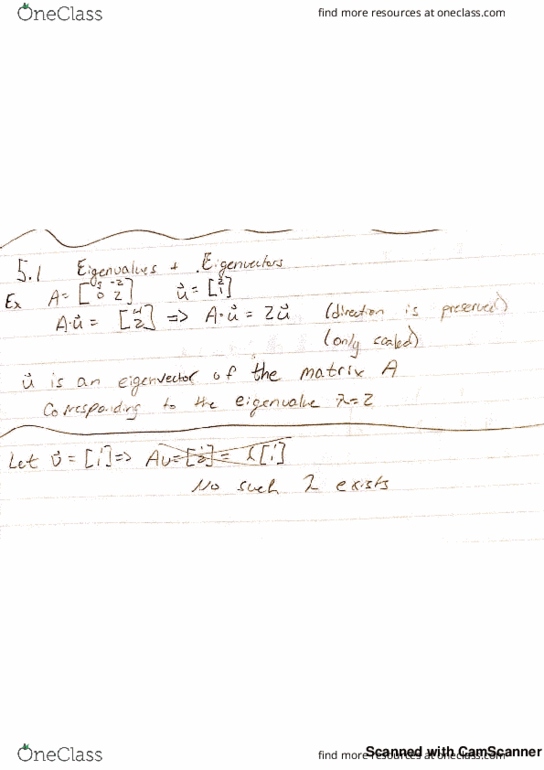 OneClass
find more resources at oneclass.com
5.1 Eigenvalues + Eigenvectors
Ex A = [3 -2; 0 2] u⃗ = [2; 1]
A·u⃗ = [4; 2] => A·u⃗ = 2u⃗ (direction is preserved)
(only scaled)
u⃗ is an eigenvector of the matrix A
Corresponding to the eigenvalue λ=2
Let v⃗ = [1; 1] => Av = [1; 2] = λ[1; 1]
No such λ exists
OneClass
find more resources at oneclass.com
Scanned with CamScanner